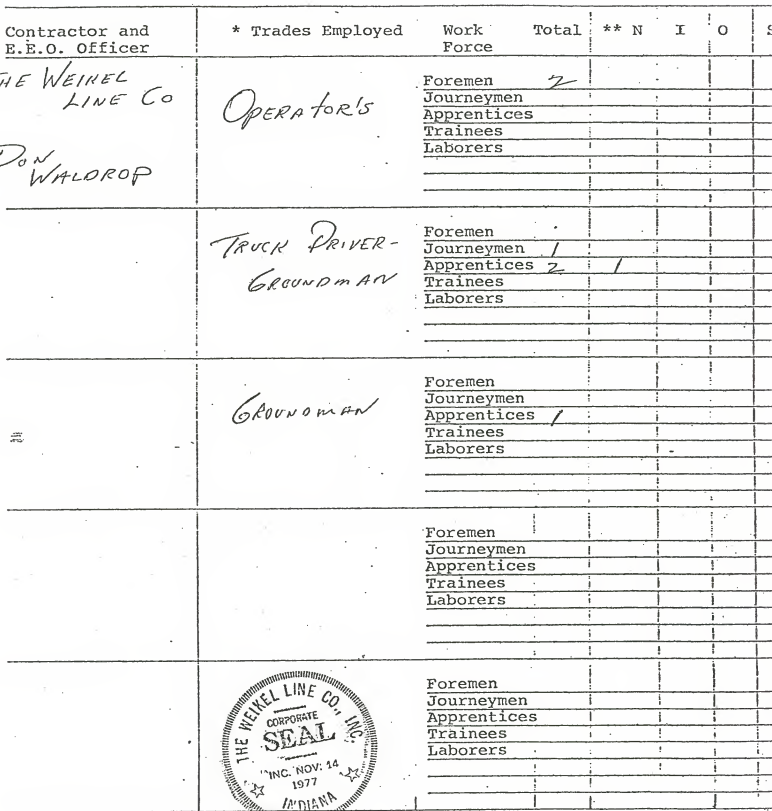 Contractor and E.E.O. Officer * Trades Employed Work Force Total ** N I O S
THE WEIKEL
LINE Co
DON
WALDROP
OPERATOR'S
Foremen 2
Journeymen
Apprentices
Trainees
Laborers
TRUCK DRIVER-
GROUNDMAN
Foremen
Journeymen 1
Apprentices 2 1
Trainees
Laborers
GROUNDMAN
Foremen
Journeymen
Apprentices 1
Trainees
Laborers
Foremen
Journeymen
Apprentices
Trainees
Laborers
THE WEIKEL LINE CO., INC.
CORPORATE
SEAL
INC. NOV. 14
1977
INDIANA
Foremen
Journeymen
Apprentices
Trainees
Laborers